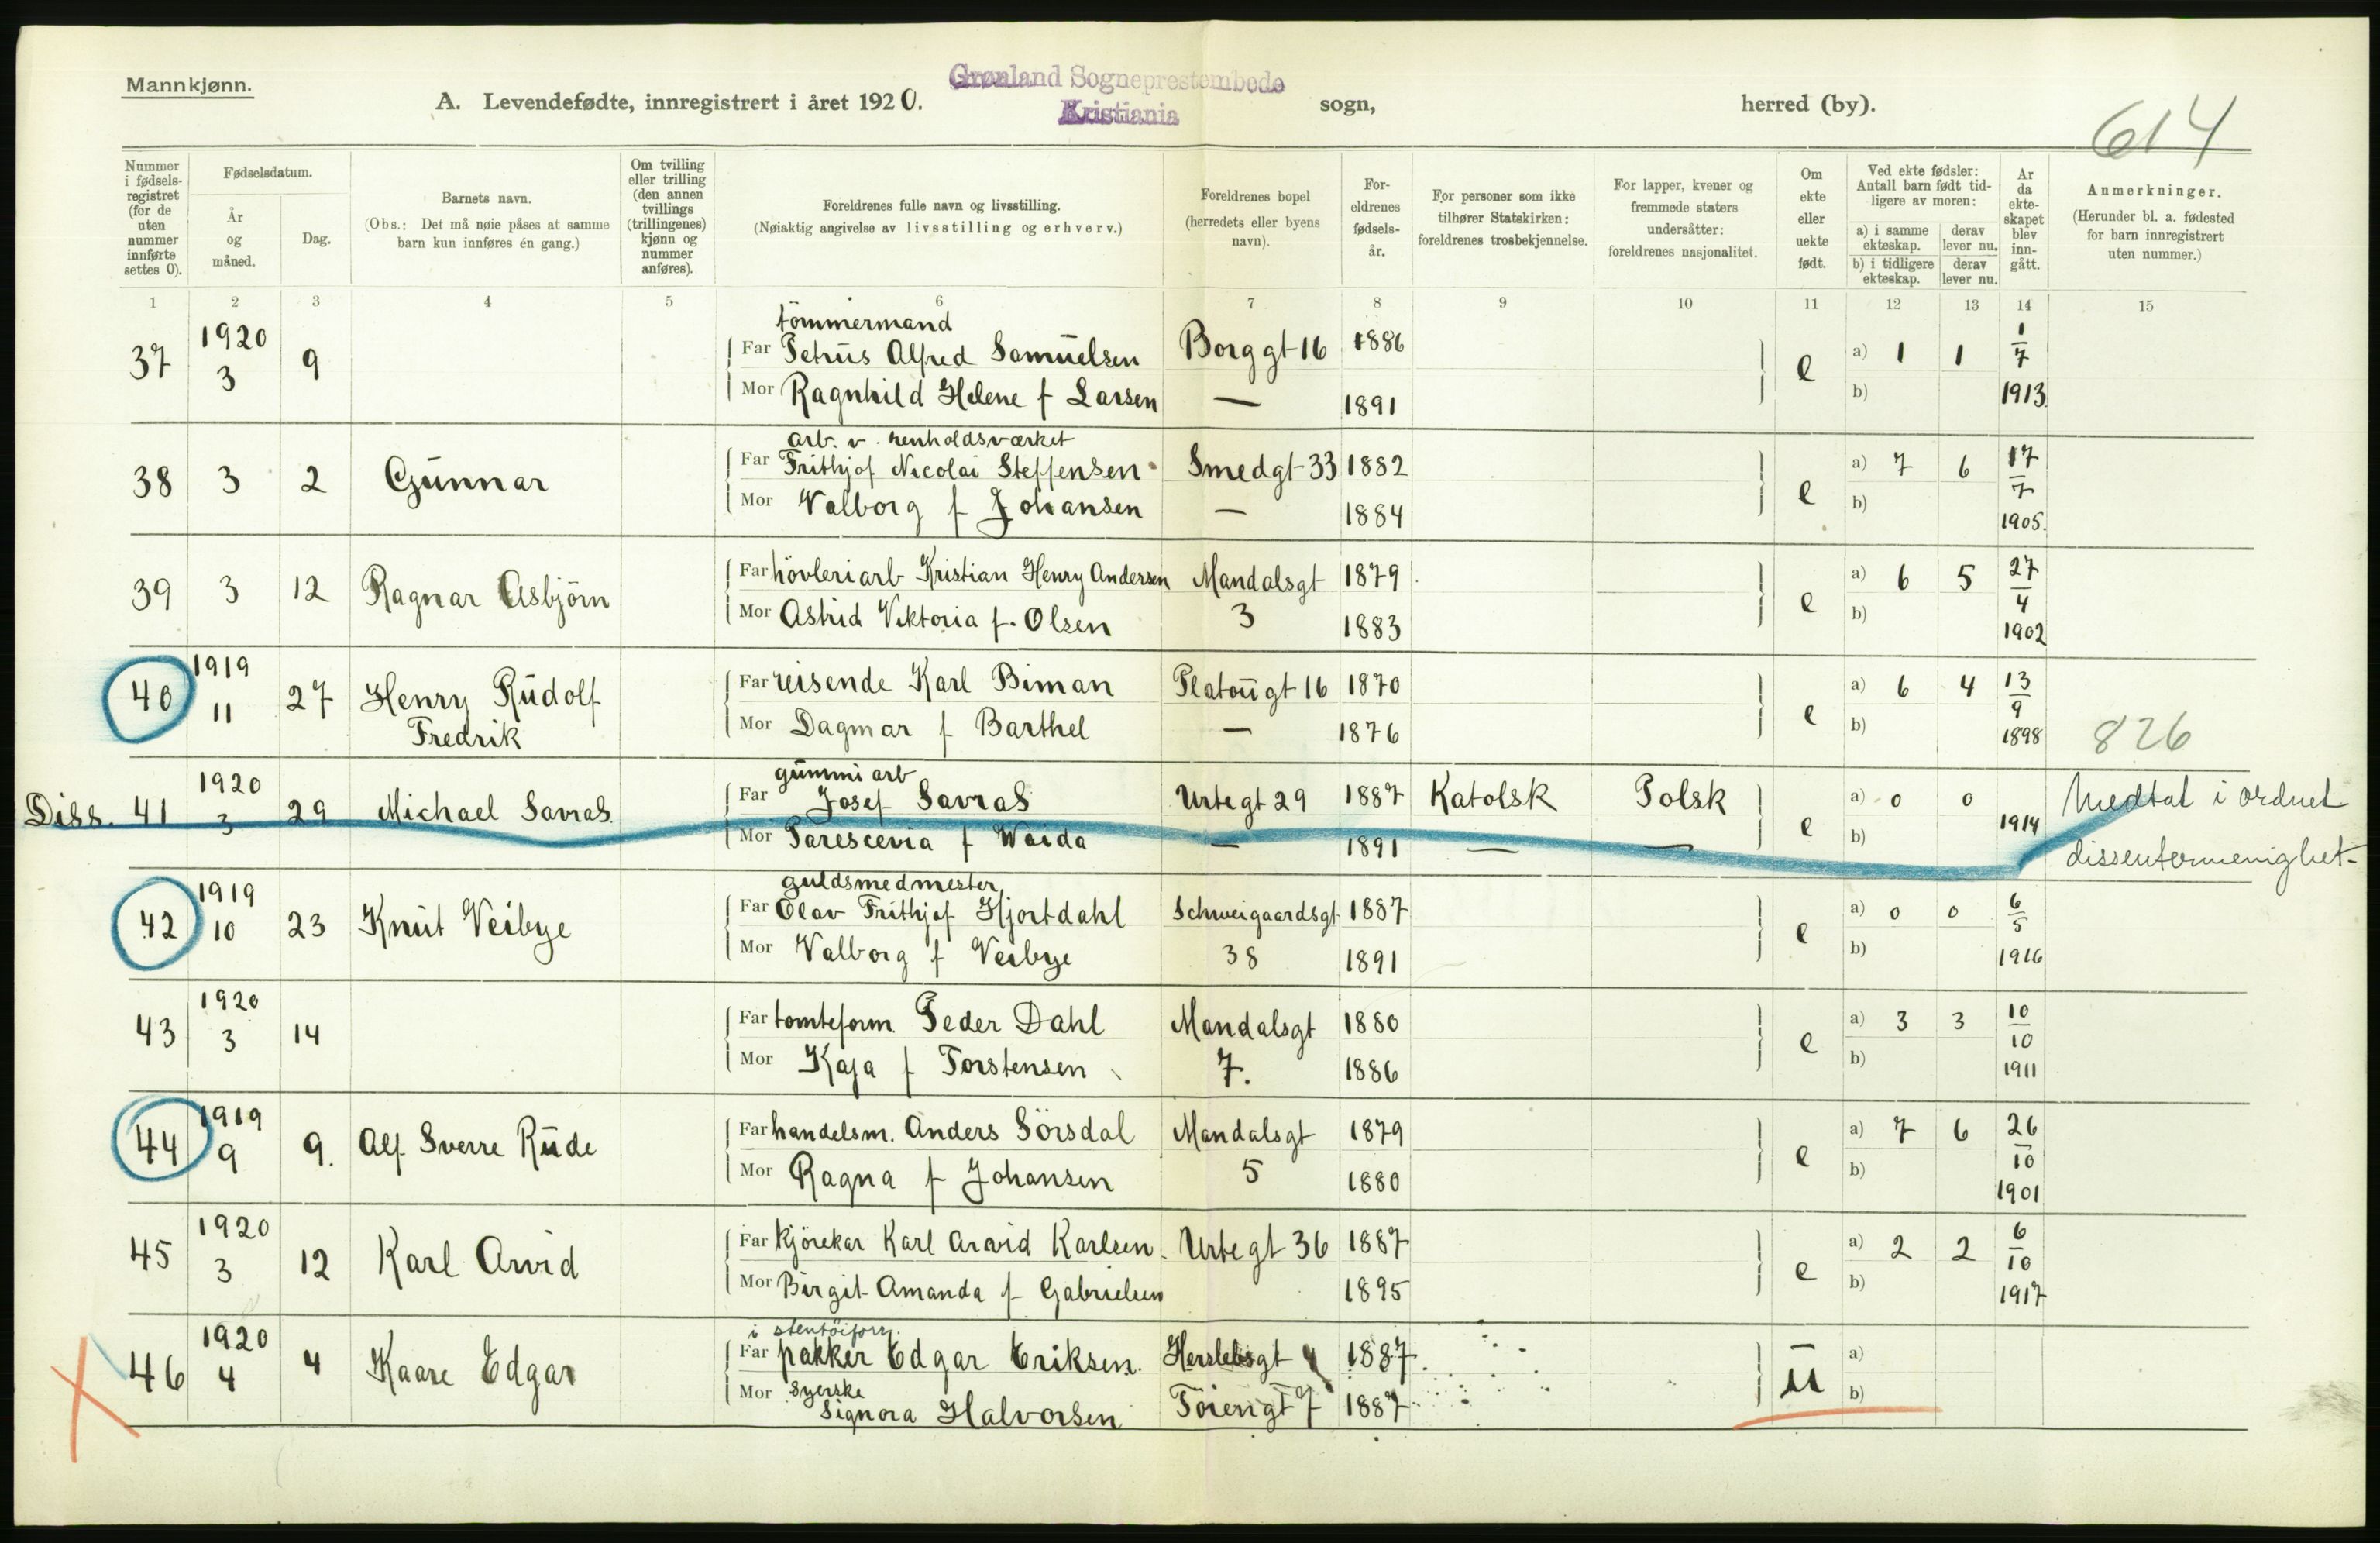 Mannkjønn.
A. Levendefødte, innregistrert i året 1920.
Grønland Sogneprestembede
Kristiania
sogn,
herred (by).
614
Nummer i fødsels-registret (for de uten nummer innførte settes 0).
Fødselsdatum.
År og måned.
Dag.
Barnets navn.
(Obs.: Det må nøie påses at samme barn kun innføres én gang.)
Om tvilling eller trilling (den annen tvillings (trillingenes) kjønn og nummer anføres).
Foreldrenes fulle navn og livsstilling.
(Nøiaktig angivelse av livsstilling og erhverv.)
Foreldrenes bopel (herredets eller byens navn).
For-eldrenes fødsels-år.
For personer som ikke tilhører Statskirken: foreldrenes trosbekjennelse.
For lapper, kvener og fremmede staters undersåtter: foreldrenes nasjonalitet.
Om ekte eller uekte født.
Ved ekte fødsler: Antall barn født tid-ligere av moren:
a) i samme ekteskap.
derav lever nu.
b) i tidligere ekteskap.
derav lever nu.
År da ekte-skapet blev inn-gått.
Anmerkninger.
(Herunder bl. a. fødested for barn innregistrert uten nummer.)
1 2 3 4 5 6 7 8 9 10 11 12 13 14 15
tömmermand
37 1920 3 9 Far Petrus Alfred Samuelsen Borggt 16 1886 e a) 1 1 1/7 1913
Mor Ragnhild Helene f Larsen — 1891 b)
arb. v. renholdsværket
38 3 2 Gunnar Far Frithjof Nicolai Steffensen Smedgt 33 1882 e a) 7 6 17/7 1905.
Mor Valborg f Johansen — 1884 b)
39 3 12 Ragnar Asbjörn Far hövleriarb Kristian Henry Andersen Mandalsgt 1879 e a) 6 5 27/4 1902
Mor Astrid Viktoria f. Olsen 3 1883 b)
40 1919 11 27 Henry Rudolf Far reisende Karl Biman Platougt 16 1870 e a) 6 4 13/9 1898
Fredrik Mor Dagmar f Barthel — 1876 b) 826
gummiarb
Diss. 41 1920 3 29 Michael Savras Far Josef Savras Urtegt 29 1887 Katolsk Polsk e a) 0 0 1914 Medtat i ordnet
Mor Parescevia f Waida — 1891 — — b) dissentermenighet-
guldsmedmester
42 1919 10 23 Knut Veibye Far Olav Frithjof Hjortdahl Schweigaardsgt 1887 e a) 0 0 6/5 1916
Mor Valborg f Veibye 38 1891 b)
43 1920 3 14 Far tomteform. Peder Dahl Mandalsgt 1880 e a) 3 3 10/10 1911
Mor Kaja f Torstensen 7. 1886 b)
44 1919 9 9. Alf Sverre Rude Far handelsm. Anders Sörsdal Mandalsgt 1879 e a) 7 6 26/10 1901
Mor Ragna f Johansen 5 1880 b)
45 1920 3 12 Karl Arvid Far kjörekar Karl Arvid Karlsen. Urtegt 36 1887 e a) 2 2 6/10 1917
Mor Birgit Amanda f Gabrielsen 1895 b)
i stentöiforr.
46 1920 4 4 Kaare Edgar Far pakker Edgar Eriksen. Herslebsgt 4 1887. u a)
Mor Syerske Signora Halvorsen Töiengt 7 1887 b)